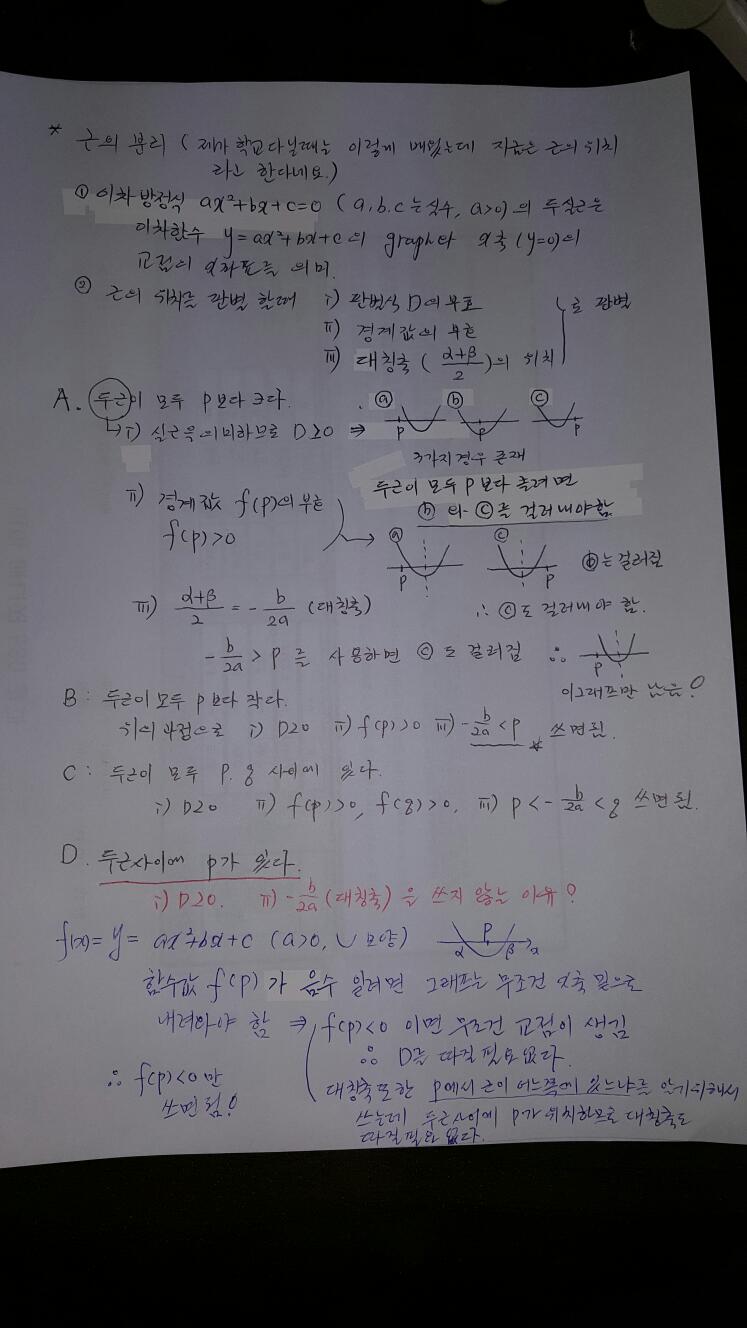 * 근의 분리 (제가 학교다닐때는 이렇게 배웠는데 지금은 근의 위치
라고 한다네요.)
① 이차방정식 ax²+bx+c=0 (a,b,c는 실수, a>0)의 두실근은
이차함수 y=ax²+bx+c의 graph와 x축(y=0)의
교점의 x좌표를 의미.
② 근의 위치를 판별 할때 i) 판별식 D의 부호
ii) 경계값의 부호 로 판별
iii) 대칭축 (α+β/2)의 위치
A. 두근이 모두 p보다 크다. ⓐ ⓑ ⓒ
p p p
↳ i) 실근을 의미하므로 D≥0 ⇒
3가지경우 존재
두근이 모두 p보다 클려면
ⓑ와 ⓒ를 걸러내야함
ii) 경계값 f(p)의 부호
f(p)>0 → ⓐ ⓒ ⓑ는 걸러짐
p p
iii) α+β/2 = -b/2a (대칭축) ∴ ⓒ도 걸러내야 함.
-b/2a > p 를 사용하면 ⓒ도 걸러짐 ∴ p
이그래프만 남음!
B: 두근이 모두 p보다 작다.
위의 과정으로 i) D≥0 ii) f(p)>0 iii) -b/2a <p * 쓰면됨.
C: 두근이 모두 p, q 사이에 있다.
i) D≥0 ii) f(p)>0, f(q)>0, iii) p<-b/2a<q 쓰면됨.
D. 두근사이에 p가 있다.
i) D≥0. ii) -b/2a (대칭축)을 쓰지 않는 이유?
f(x)= y= ax²+bx+c (a>0, ∪모양) α p β x
함수값 f(p)가 음수 일려면 그래프는 무조건 x축 밑으로
내려와야 함 ⇒ f(p)<0 이면 무조건 교점이 생김
∴ D를 따질필요없다.
∴ f(p)<0만
쓰면됨!
대칭축또한 p에서 근이 어느쪽에 있느냐를 알기위해서
쓰는데 두근사이에 p가 위치하므로 대칭축도
따질필요 없다.